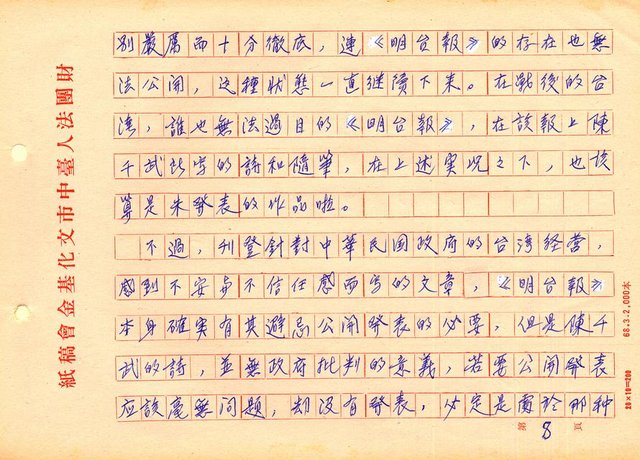 別嚴厲而十分徹底，連《明台報》的存在也無
法公開，这種狀態一直继續下来。在戰後的台
湾，誰也無法過目的《明台報》，在該報上陳
千武所写的詩和隨筆，在上述实况之下，也该
算是未發表的作品啦。
不過，刊登針對中華民国政府的台湾经营，
感到不安與不信任感而写的文章，《明台報》
本身確実有其避忌公開發表的必要，但是陳千
武的詩，並無政府批判的意義，若要公開發表
应該毫無問題，却沒有發表，必定是處於那种
第8頁
財團法人臺中市文化基金會稿紙
68.3.2,000本
20×10=200